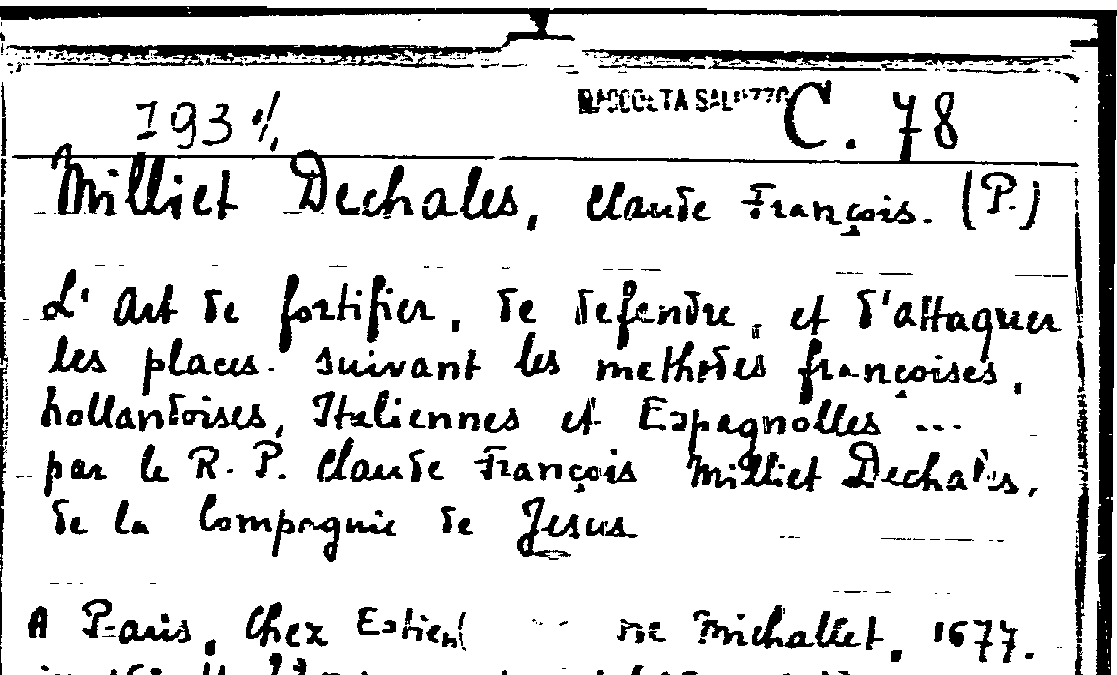 RACCOLTA SALUZZO
193 C. 78
Milliet Dechales, Claude François. (P.)
L'Art de fortifier, de defendre, et d'attaquer
les places. suivant les methodes françoises,
hollandoises, Italiennes et Espagnolles ...
par le R. P. Claude François Milliet Dechales,
de la Compagnie de Jesus
A Paris, Chez Estienne Michallet, 1677.